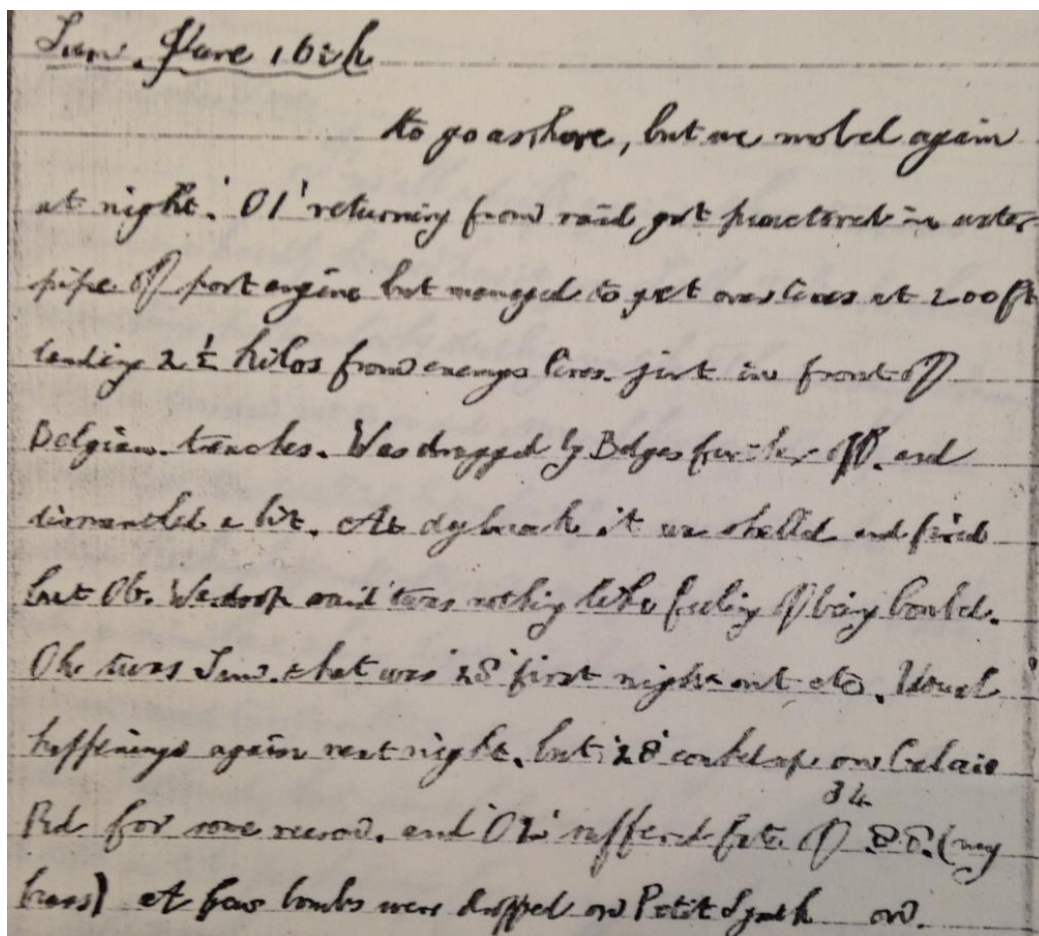 Sun. June 16th
to go ashore, but we mobed again
at night. '01' returning from raid got punctured in water
pipe of port engine but managed to get over lines at 200 ft
landing 2 ½ kilos from enemys lines. just in front of
Belgian. trenches. Was dragged by Belges further off. and
dismantled a bit. At daybreak it was shelled and fired
but Ob. said twas nothing like feeling of being bombed.
Oh twas Sun. that was '28' first night out etc. Usual
happenings again next night. but '28' up on Calais
34
Rd for some reason. and '02' suffered fate of (my
) A few bombs were dropped on Petit Synth on.